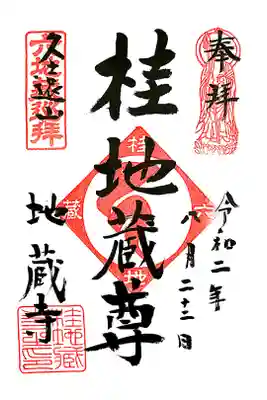 奉拝
令和二年
八月二十二日
桂地蔵尊
桂
六
地
蔵
六地蔵巡拝
地蔵寺